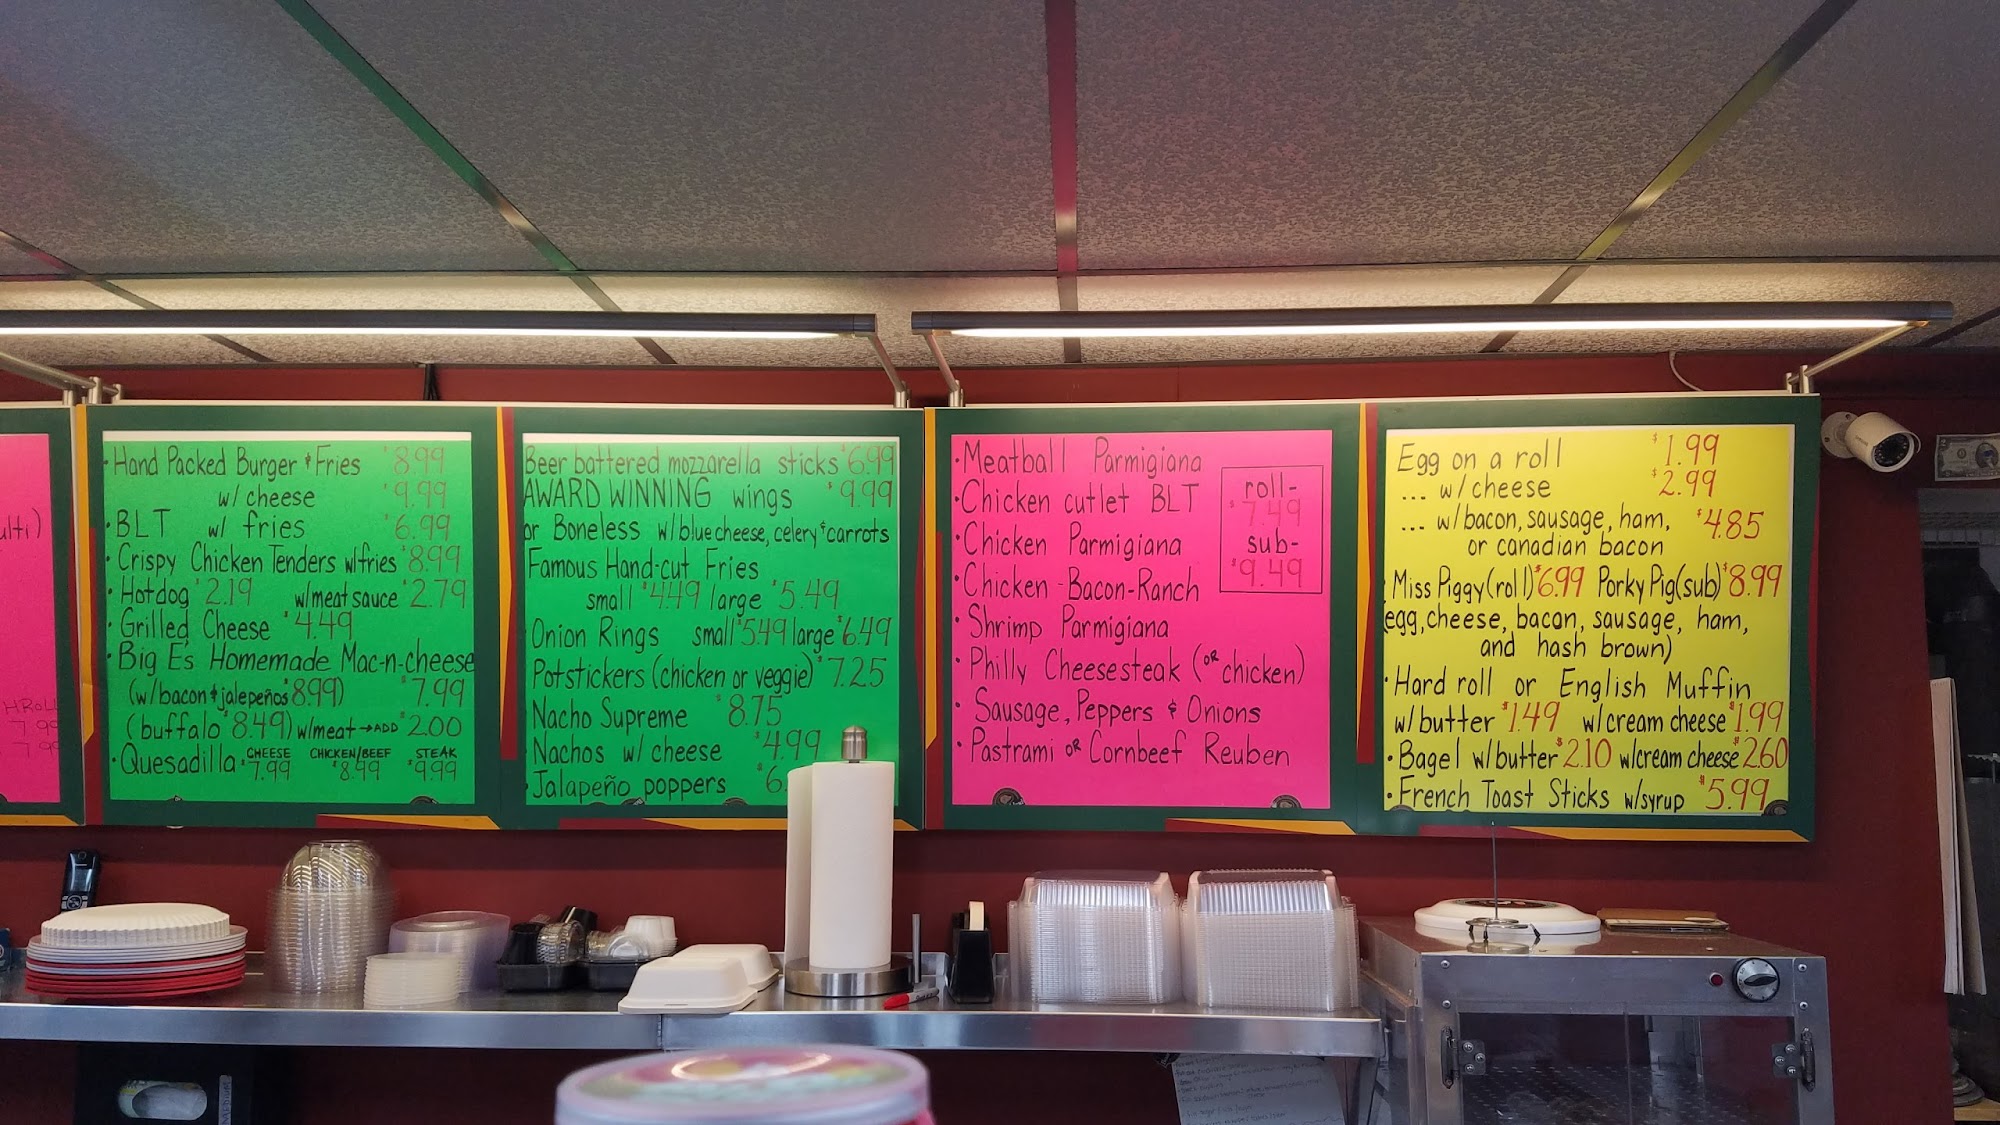 ulti)
HROLL
7.99
7.99
• Hand Packed Burger & Fries $8.99
w/ cheese $9.99
• BLT w/ fries $6.99
• Crispy Chicken Tenders w/fries $8.99
• Hotdog $2.19 w/meat sauce $2.79
• Grilled Cheese $4.49
• Big E's Homemade Mac-n-cheese
(w/bacon & jalepeños $8.99) $7.99
(buffalo $8.49) w/meat → ADD $2.00
• Quesadilla CHEESE $7.99 CHICKEN/BEEF $8.99 STEAK $9.99
Beer battered mozzarella sticks $6.99
AWARD WINNING wings $9.99
or Boneless w/bluecheese, celery & carrots
Famous Hand-cut Fries
small $4.49 large $5.49
Onion Rings small $5.49 large $6.49
Potstickers (chicken or veggie) $7.25
Nacho Supreme $8.75
Nachos w/ cheese $4.99
• Jalapeño poppers $6.
• Meatball Parmigiana
• Chicken cutlet BLT
• Chicken Parmigiana
• Chicken-Bacon-Ranch
• Shrimp Parmigiana
• Philly Cheesesteak (or chicken)
• Sausage, Peppers & Onions
• Pastrami or Cornbeef Reuben
roll-
$7.49
sub-
$9.49
Egg on a roll $1.99
... w/cheese $2.99
... w/bacon, sausage, ham, $4.85
or canadian bacon
• Miss Piggy (roll) $6.99 Porky Pig (sub) $8.99
(egg, cheese, bacon, sausage, ham,
and hash brown)
• Hard roll or English Muffin
w/butter $1.49 w/cream cheese $1.99
• Bagel w/butter $2.10 w/cream cheese $2.60
• French Toast Sticks w/syrup $5.99